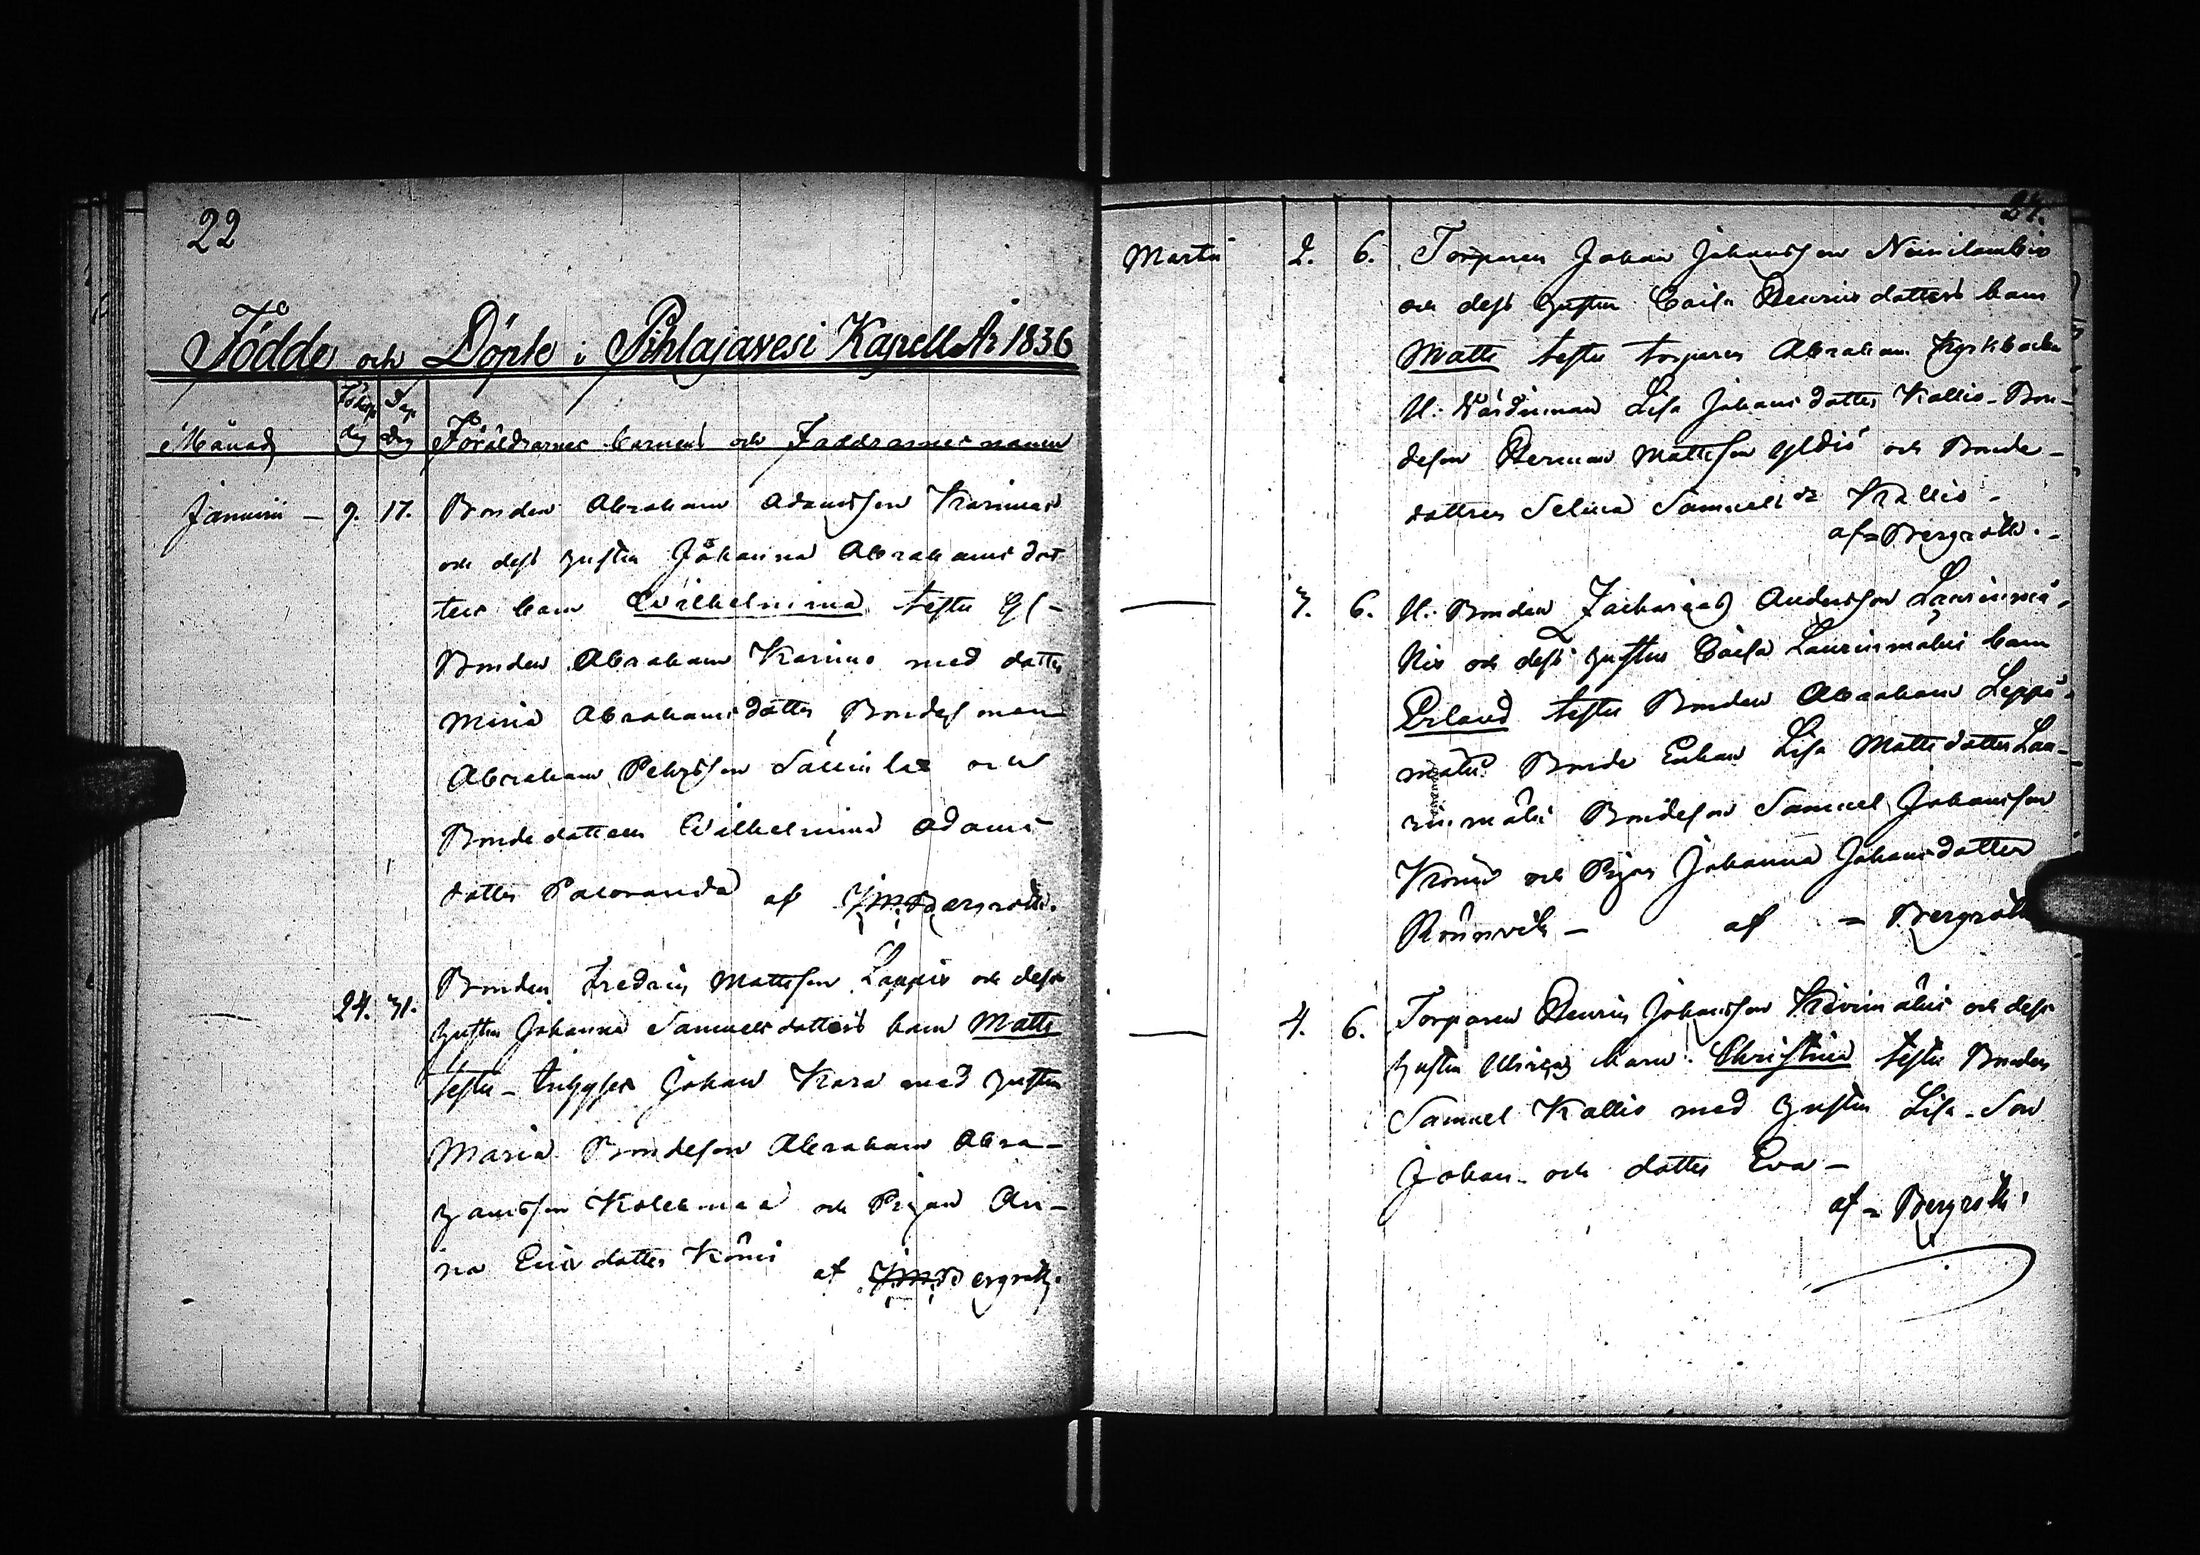 22
Födde och Döpte i Pihlajavesi Kapell År 1836
Månad
Födelse dag
Dop dag
Föräldrarnes barnens och Faddrarnes namn
Januarii - 9. 17. Bonden Abraham Adamsson Karimo
och dess hustru Johanna Abrahams dot
ters barn Wilhelmina testes Gl-
Bonden Abraham Karimo med dotter
Maria Abrahams dotter, Bondes man
Abraham Pehrsson och
Bondedottern Wilhelmina Adams
dotter Paloranda af J.M. Bergroth.
- 24. 31. Bonden Fredric Mattsson Lappi och dess
hustru Johanna Samuels dotters barn Matts
testes Johan Kara med hustru
Maria Bondeson Abraham Abra-
hamsson Kolehma och Pigan An-
na Erics dotter Köni af J.M. Bergroth.
24.
Martii 2. 6. Torparen Johan Johansson Niinilambi
och dess hustru Caisa Henrics dotters barn
Matts testes torparen Abraham Kyrkbacka
U. Värdinnan Lisa Johans dotter Kallio - Bon-
deson Herman Mattsson Yldiö och Bonde-
dottren Selma Samuels dr Kallio -
af = Bergroth. -
- 3. 6. U. Bonden Zacharias Andersson Laurinmä-
kis och dess hustru Caisa Laurinmäkis barn
Erland testes Bonden Abraham Leppä-
mäki Bonde Enkan Lisa Matts dotter Lau-
rinmäki Bondeson Samuel Johansson
Köni och Pigan Johanna Johans dotter
Rönnvik - af = Bergroth
- 4. 6. Torparen Henric Johansson Kivimäki och dess
hustru Ulricas barn Christina testes Bonden
Samuel Kallio med hustru Lisa - Son
Johan - och dotter Eva -
af = Bergroth.